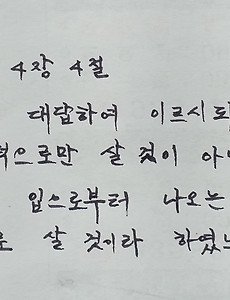 4장 4절
대답하여 이르시되
떡으로만 살 것이 아니
입으로부터 나오는
로 살 것이라 하였느